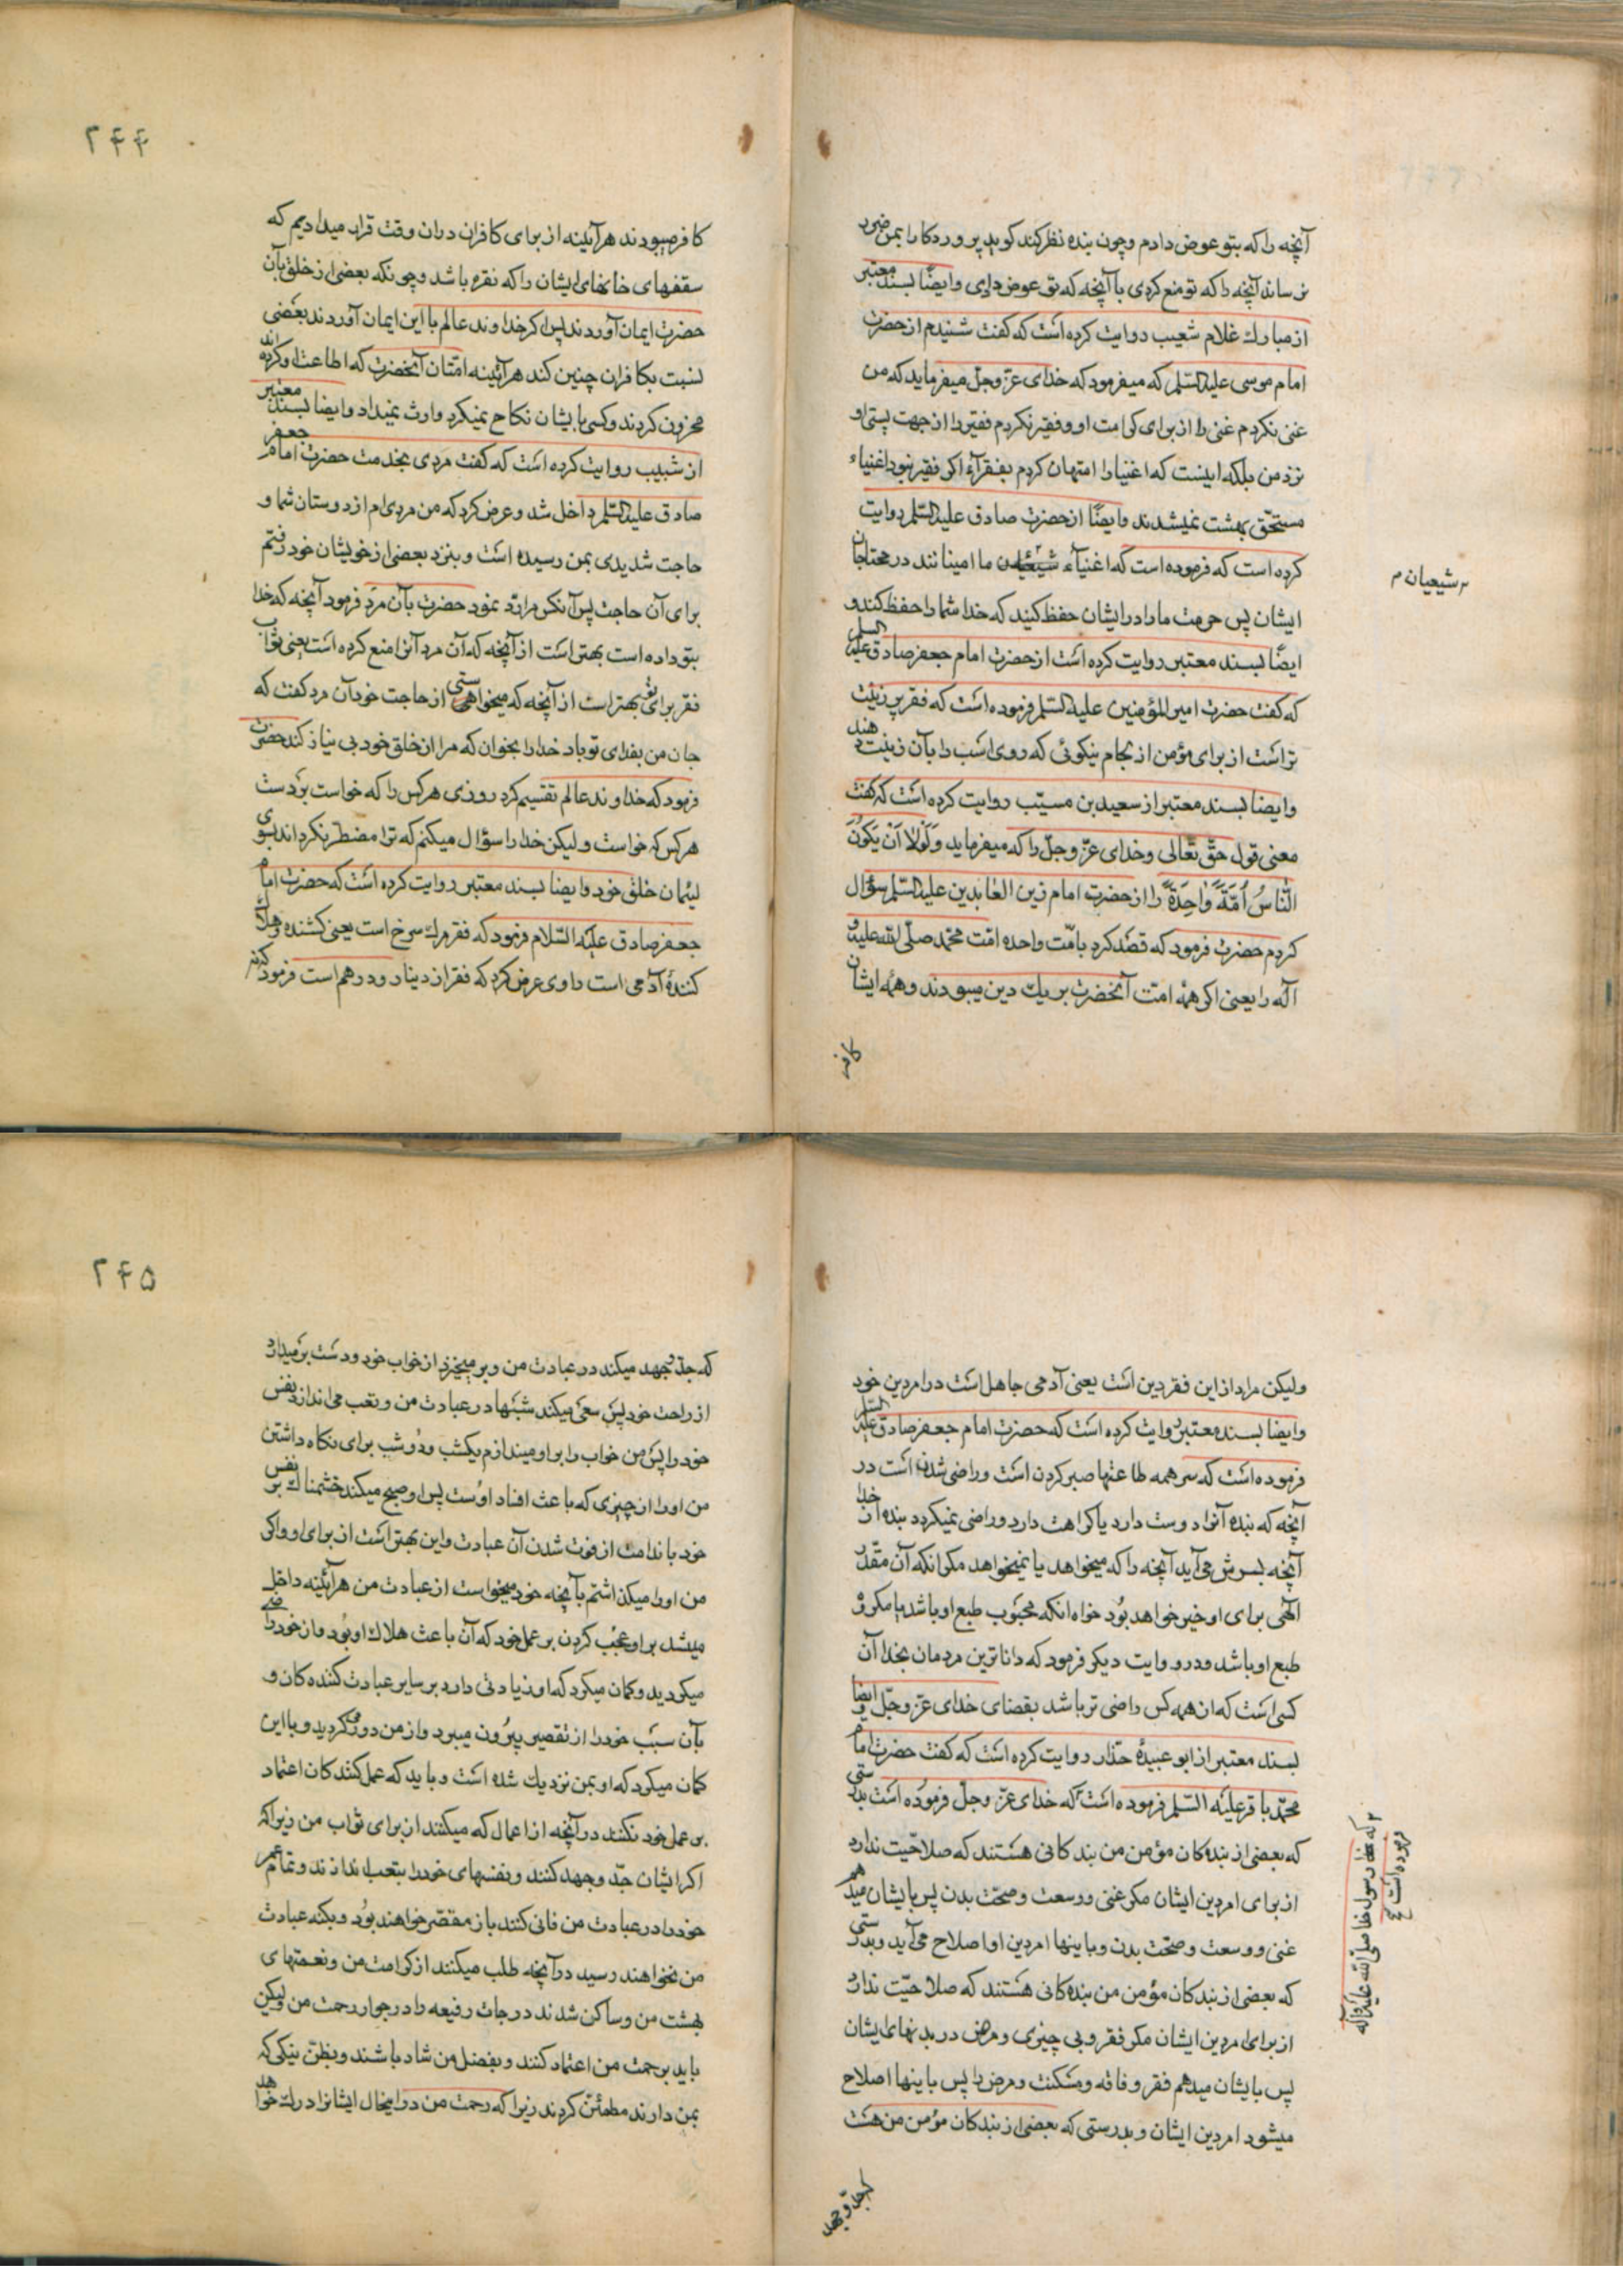 آنچه را که بتو عوض دادم و چون بنده نظر کند کوید پروردکارا بمن ضرر
نرساند آنچه را که تو منع کردی با آنچه که تو عوض دادی و ایضًا بسند معتبر
از مبارك غلام شعیب روایت کرده است که کفت شنیدم از حضرت
امام موسی علیه السّلم که میفرمود که خدای عزّ وجلّ میفرماید که من
غنی نکردم غنی را از برای کرامت او و فقیر نکردم فقیر را از جهت پستی او
نزد من بلکه اینست که اغنیا را امتهان کردم بفقرآء اکر فقیر نبود اغنیاء
مستحّق بهشت نمیشدند و ایضًا از حضرت صادق علیه السّلم روایت
کرده است که فرموده است که اغنیآء شیعیان ما امینانند در محتاجان
شیعیان م
ایشان پس حرمت ما را در ایشان حفظ کنید که خدا شما را حفظ کند و
ایضًا بسند معتبر روایت کرده است از حضرت امام جعفر صادق علیه السلم
که کفت حضرت امیر المؤمنین علیه السّلم فرموده است که فقر پر زینت
تر است از برای مؤمن از لجام نیکوئی که روی اسب را بآن زینت دهند
و ایضا بسند معتبر از سعید بن مسیّب روایت کرده است که کفت
معنی قول حقّ تعّالی و خدای عزّ وجلّ را که میفرماید وَلَوْلا اَنْ یَکُونَ
النّاسُ اُمَّةً وٰاحِدَةً را از حضرت امام زین العٰابدین علیه السّلم سؤال
کردم حضرت فرمود که قصد کرد بامّت واحده امّت محمّد صلّی الله علیه و
اله را یعنی اکر همۀ امّت آنحضرت بر یك دین میبودند و همۀ ایشان
کافر
۲۴۴
کافر میبودند هرآئینه از برای کافران در ان وقت قرار میدادیم که
سقفهای خانهای ایشان را که نقره باشد و چونکه بعضی از خلق بآن
حضرت ایمان آوردند پس اکر خداوند عالم با این ایمان آوردند بعضی
نسبت بکافران چنین کند هرآئینه امّتان آنحضرت که اطاعت او کرده اند
محزون کردند و کسی بایشان نکاح نمیکرد وارث نمیداد و ایضا بسند معتبر
از شبیب روایت کرده است که کفت مردی بخدمت حضرت امام جعفر
صادق علیه السّلم داخل شد و عرض کرد که من مردی ام از دوستان شما و
حاجت شدیدی بمن رسیده است و بنزد بعضی از خویشان خود رفتم
برای آن حاجت پس آنکس مرا ردّ نمود حضرت بآن مرد فرمود آنچه که خدا
بتو داده است بهتر است از آنچه که آن مرد آنرا منع کرده است یعنی ثواب
فقر برای تو بهتر است از آنچه که میخواهی از حاجت خود آن مرد کفت که
جان من بفدای تو باد خدا را بخوان که مرا از خلق خود بی نیاز کند حضرت
فرمود که خداوند عالم تقسیم کرد روزی هر کس را که خواست بر دست
هر کس که خواست و لیکن خدا را سؤال میکنم که ترا مضطر نکرداند بسوی
لئیمان خلق خود و ایضا بسند معتبر روایت کرده است که حضرت امام
جعفر صادق علیه السّلام فرمود که فقر مرك سرخ است یعنی کشنده و هلاك
کنندۀ آدمی است راوی عرض کرد که فقر از دینار و درهم است فرمود که نه
ولیکن مراد از این فقر دین است یعنی آدمی جاهل است در امر دین خود
و ایضا بسند معتبر روایت کرده است که حضرت امام جعفر صادق علیه السلم
فرموده است که سر همه طاعتها صبر کردن است و راضی شدن است در
که حضرت رسول خدا صلّی الله علیه و آله
فرموده است صح
آنچه که بنده آنرا دوست دارد یا کراهت دارد و راضی نمیکردد بنده از خدا
آنچه بسرش می آید آنچه را که میخواهد یا نمیخواهد مکر انکه آن مقدّر
الٓهی برای او خیر خواهد بُود خواه انکه محبوب طبع او باشد یا مکروه
طبع او باشد و در روایت دیکر فرمود که داناترین مردمان بخدا آن
کسی است که از همه کس راضی تر باشد بقضای خدای عزّ وجلّ و ایضا
بسند معتبر از ابو عبیدۀ حذّار روایت کرده است که کفت حضرت امام
محمّد باقر علیه السّلم فرموده است که خدای عزّ وجلّ فرموده است بدرستی
که بعضی از بنده کان مؤمن من بندکانی هستند که صلاحیّت ندارد
از برای امر دین ایشان مکر غنی و وسعت و صحّت بدن پس بایشان میدهم
غنی و وسعت و صحّت بدن و باینها امر دین او اصلاح می آید و بدرستی
که بعضی از بندکان مؤمن من بنده کانی هستند که صلاحیّت ندارد
از برای امر دین ایشان مکر فقر و بی چیزی و مرض در بدنهای ایشان
پس بایشان میدهم فقر و فاقه و مسکنت و مرض را پس باینها اصلاح
میشود امر دین ایشان و بدرستی که بعضی از بندکان مؤمن من هست
که جدّ و جهد
۲۴۵
که جدّ و جهد میکند در عبادت من و بر میخیزد از خواب خود و دست بر میدارد
از راحت خود پس سعی میکند شبنها در عبادت من و بتعب می اندازد نفس
خود را پس من خواب را بر او میندازم یکشب و دو شب برای نکاه داشتن
من او را از چیزی که باعث افساد اوست پس او صبح میکند خشمناك بر نفس
خود با ندامت از فوت شدن آن عبادت و این بهتر است از برای او و اکر
من او را میکذاشتم بآنچه خود میخواست از عبادت من هرآئینه داخل
میشد بر او عجُب کردن بر عمل خود که آن باعث هلاك او بُود و از خود راضی
میکردید و کمان میکرد که او زیادتی دارد بر سایر عبادت کننده کان و
بآن سبب خود را از تقصیر بیرون میبرد و از من دور میکردید و با این
کمان میکرد که او بمن نزدیك شده است و باید که عمل کنند کان اعتماد
بر عمل خود نکنند در آنچه از اعمال که میکنند از برای ثواب من زیرا که
اکر ایشان جدّ و جهد کنند و نفسهای خود را بتعب اندازند و تمام عمر
خود را در عبادت من فانی کنند باز مقصّر خواهند بُود و بکنه عبادت
من نخواهند رسید در آنچه طلب میکنند از کرامت من و نعمتهای
بهشت من و ساکن شدند درجات رفیعه را در جوار رحمت من و لیکن
باید برحمت من اعتماد کنند و بفضل من شاد باشند و بظنّ نیکی که
بمن دارند مطمئن کردند زیرا که رحمت من در اینحال ایشانرا در رك خواهد